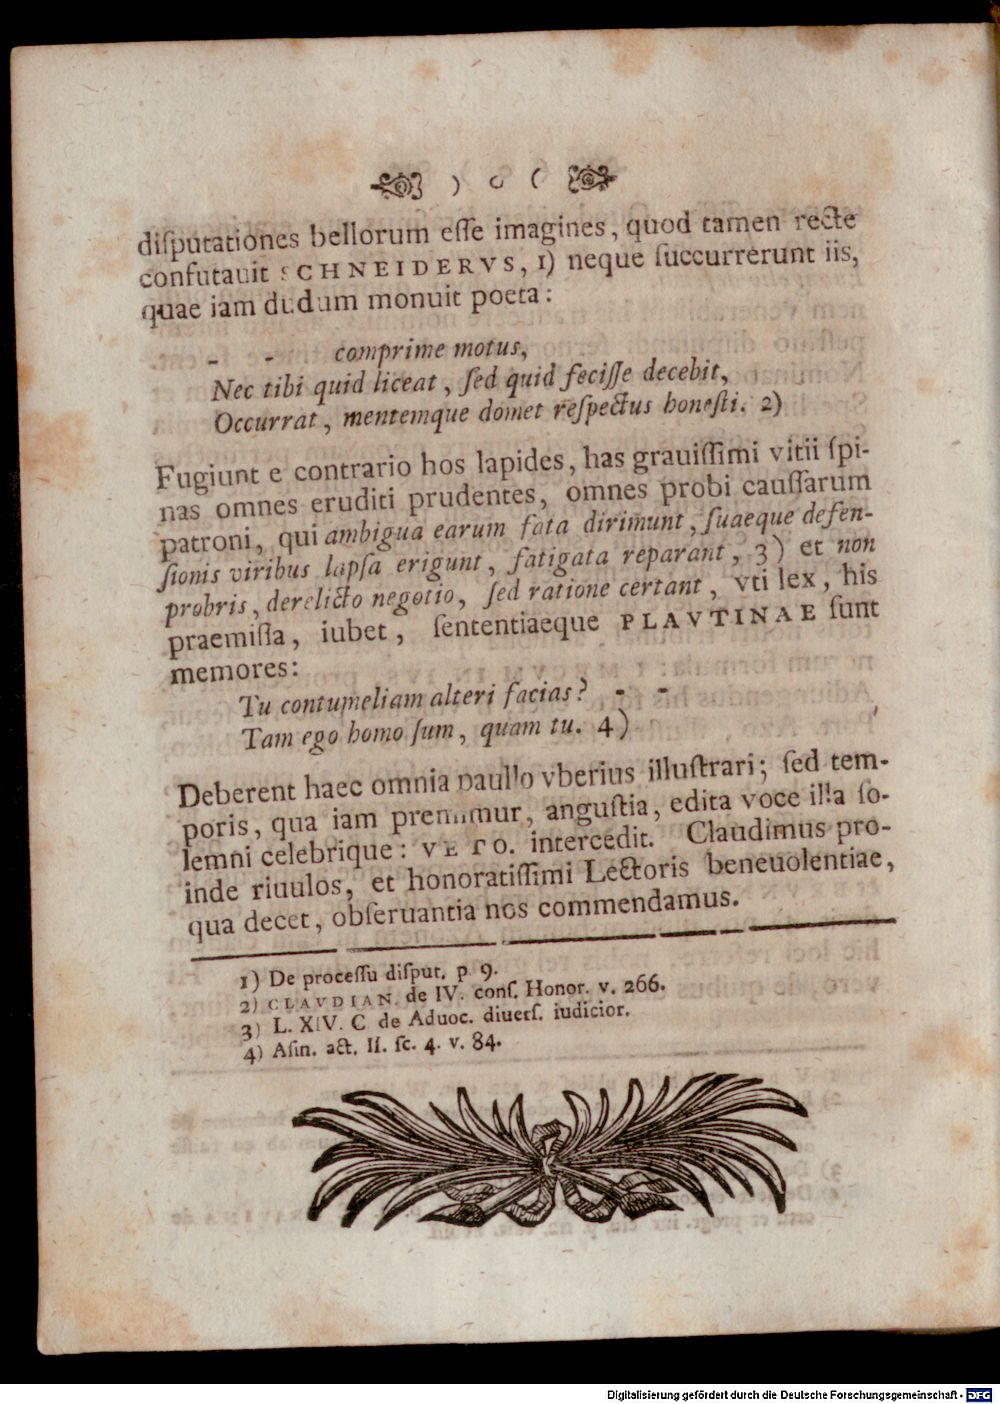 ) o (
diſputationes bellorum eſſe imagines, quod tamen recte
confutauit SCHNEIDERVS, 1) neque ſuccurrerunt iis,
quae iam dudum monuit poeta:
- - comprime motus,
Nec tibi quid liceat, ſed quid feciſſe decebit,
Occurrat, mentemque domet reſpectus honeſti. 2)
Fugiunt e contrario hos lapides, has grauiſſimi vitii ſpi-
nas omnes eruditi prudentes, omnes probi cauſſarum
patroni, qui ambigua earum fata dirimunt, ſuaeque defen-
ſionis viribus lapſa erigunt, fatigata reparant, 3) et non
probris, derelicto negotio, ſed ratione certant, vti lex, his
praemiſſa, iubet, ſententiaeque PLAVTINAE ſunt
memores:
Tu contumeliam alteri facias? - -
Tam ego homo ſum, quam tu. 4)
Deberent haec omnia paullo vberius illuſtrari; ſed tem-
poris, qua iam premimur, anguſtia, edita voce illa ſo-
lemni celebrique: VETO. intercedit. Claudimus pro-
inde riuulos, et honoratiſſimi Lectoris beneuolentiae,
qua decet, obſeruantia nos commendamus.
1) De proceſſu diſput. p. 9.
2) CLAVDIAN. de IV. conſ. Honor. v. 266.
3) L. XIV. C de Aduoc. diuerſ. iudicior.
4) Aſin. act. II. ſc. 4. v. 84.
Digitalisierung gefördert durch die Deutsche Forschungsgemeinschaft - DFG